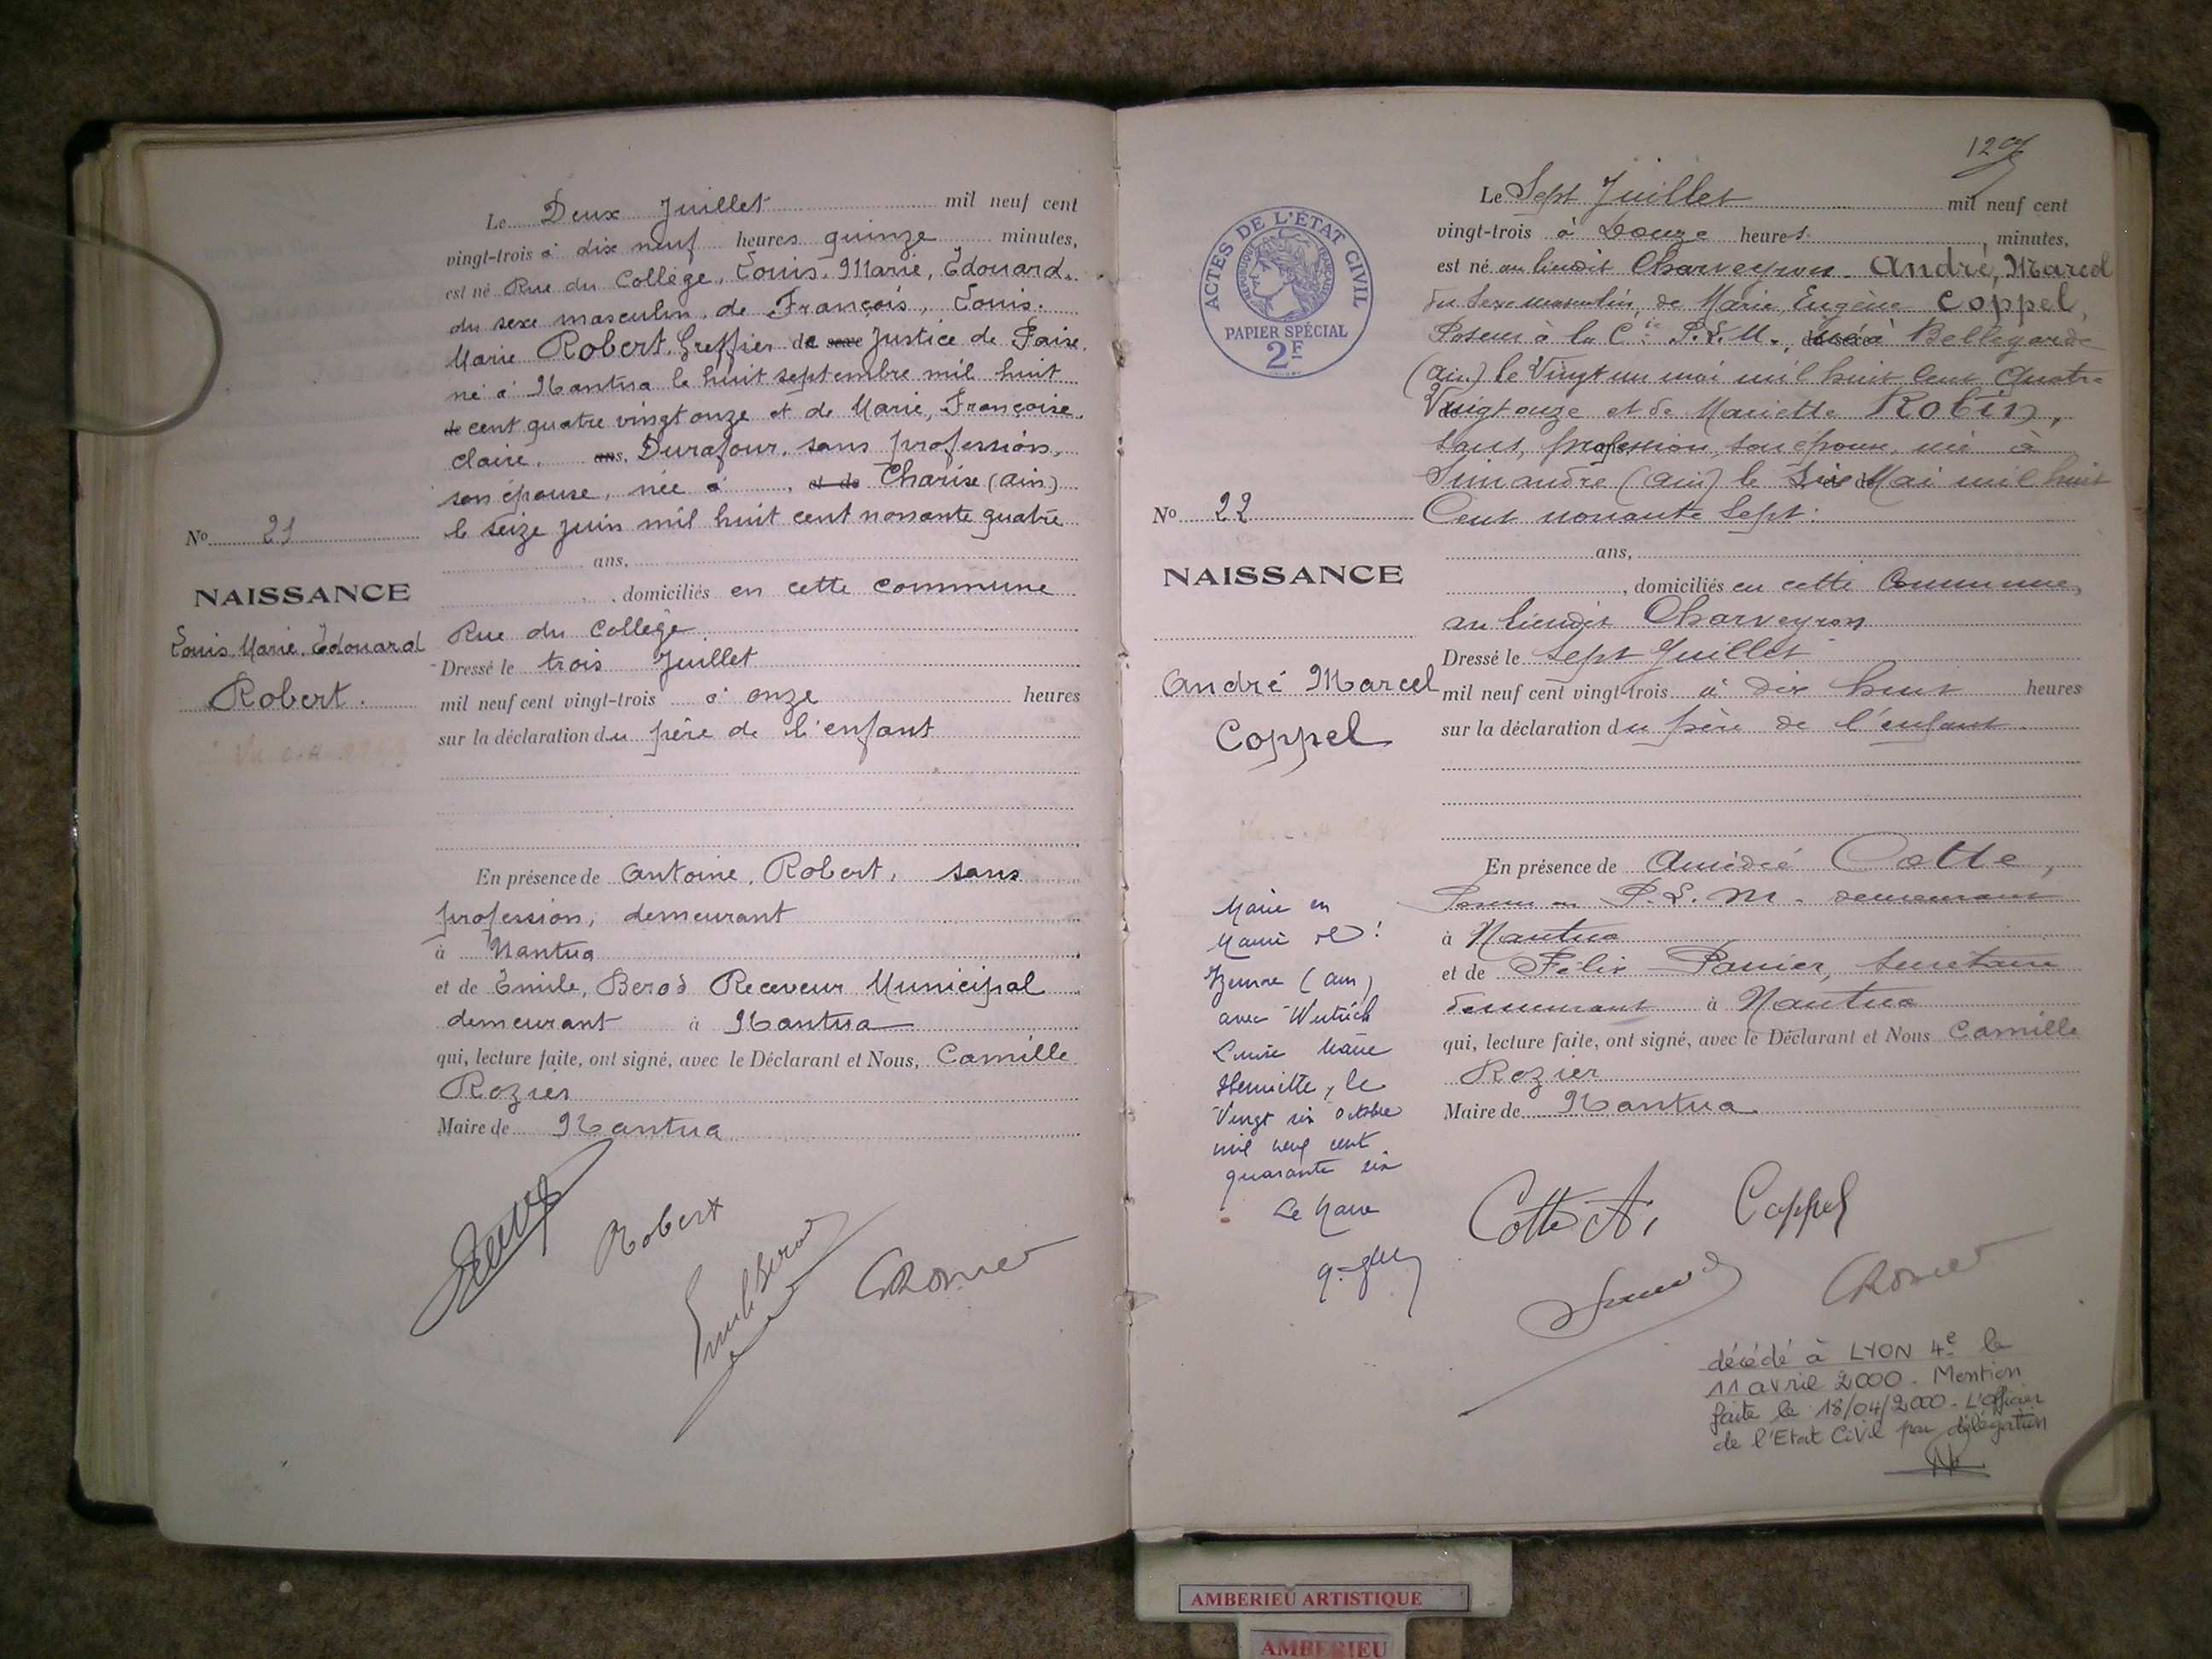 Le Deux Juillet mil neuf cent
vingt-trois à dix neuf heures quinze minutes,
est né Rue du Collège, Louis, Marie, Edouard.
du sexe masculin, de François, Louis.
Marie Robert, Greffier de sexe Justice de Paix.
né à Nantua le huit septembre mil huit
de cent quatre vingt onze et de Marie, Françoise,
claire, ans, Durafour, sans profession,
son épouse, née à , et de Charix (ain)
le seize juin mil huit cent nonante quatre
ans,
, domiciliés en cette commune
Rue du Collège
Dressé le trois Juillet
mil neuf cent vingt-trois à onze heures
sur la déclaration du père de l'enfant
No 21
NAISSANCE
Louis Marie Edouard
Robert.
En présence de Antoine, Robert, sans
profession, demeurant
à Nantua
et de Emile, Berod Receveur Municipal
demeurant à Nantua
qui, lecture faite, ont signé, avec le Déclarant et Nous, Camille
Rozier
Maire de Nantua
Robert
Emile Berod
CRozier
129
ACTES DE L'ÉTAT CIVIL
RÉPUBLIQUE FRANÇAISE
PAPIER SPÉCIAL
2F
Le Sept Juillet mil neuf cent
vingt-trois à Douze heures , minutes,
est né au lieudit Charveyron. André, Marcel
du sexe masculin, de Marie, Eugène Coppel,
Poseur à la Cie P.L.M., né à Bellegarde
(ain) le Vingt un mai mil huit cent quatre
Vingt onze et de Mariette Robin,
sans profession, son épouse, née à
Simandre (ain) le Mai mil huit
Cent nonante Sept.
ans,
, domiciliés en cette Commune,
au lieudit Charveyron
Dressé le Sept Juillet
mil neuf cent vingt-trois à dix huit heures
sur la déclaration du père de l'enfant.
No 22
NAISSANCE
André Marcel
Coppel
En présence de Amédée Cotte,
Poseur au P.L.M. demeurant
à Nantua
et de Félix Panier, Secrétaire
demeurant à Nantua
qui, lecture faite, ont signé, avec le Déclarant et Nous Camille
Rozier
Maire de Nantua
Marié en
Mairie d'
Izernore (ain)
avec Wutrich
Louise Marie
Henriette, le
Vingt six octobre
mil neuf cent
quarante six
Le Maire
Cotte A. Coppel
CRozier
décédé à LYON 4e le
11 avril 2000. Mention
faite le 18/04/2000. L'Officier
de l'Etat Civil par délégation
AMBERIEU ARTISTIQUE
AMBERIEU